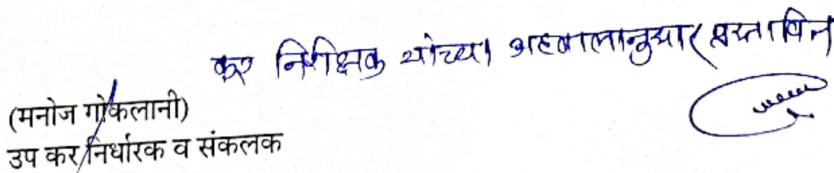 कर निरीक्षक यांच्या अहवालानुसार प्रस्तावित
(मनोज गोकलानी)
उप कर निर्धारक व संकलक